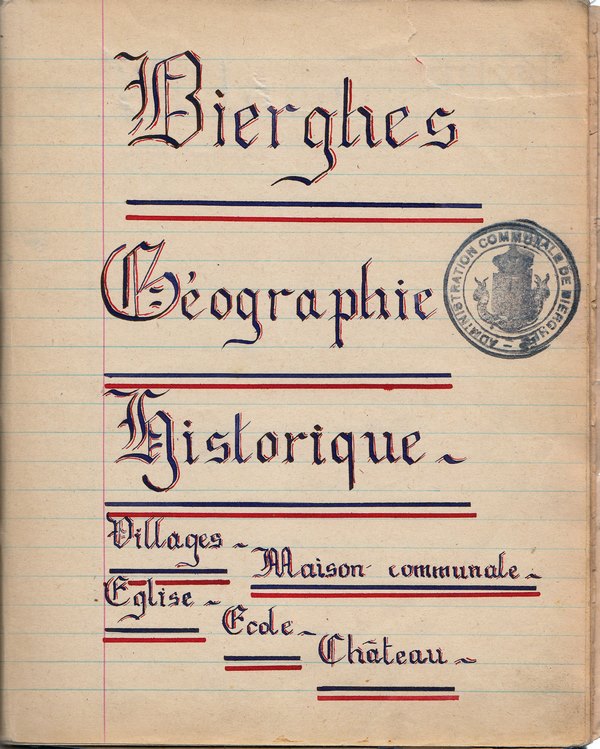 Bierghes
Géographie
ADMINISTRATION COMMUNALE DE BIERGHES
Historique -
Villages -
Maison communale -
Eglise -
Ecole -
Château -